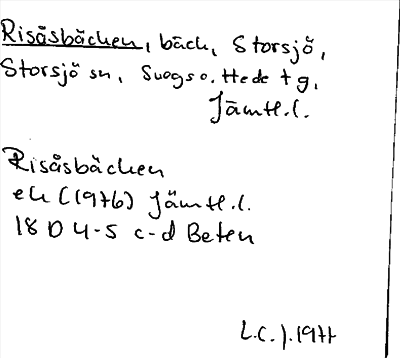 Risåsbäcken, bäck, Storsjö,
Storsjö sn, Svegs o. Hede tg,
Jämtl.l.
Risåsbäcken
ek (1976) Jämtl.l.
18 D 4-5 c-d Beten
L.C.J. 1977